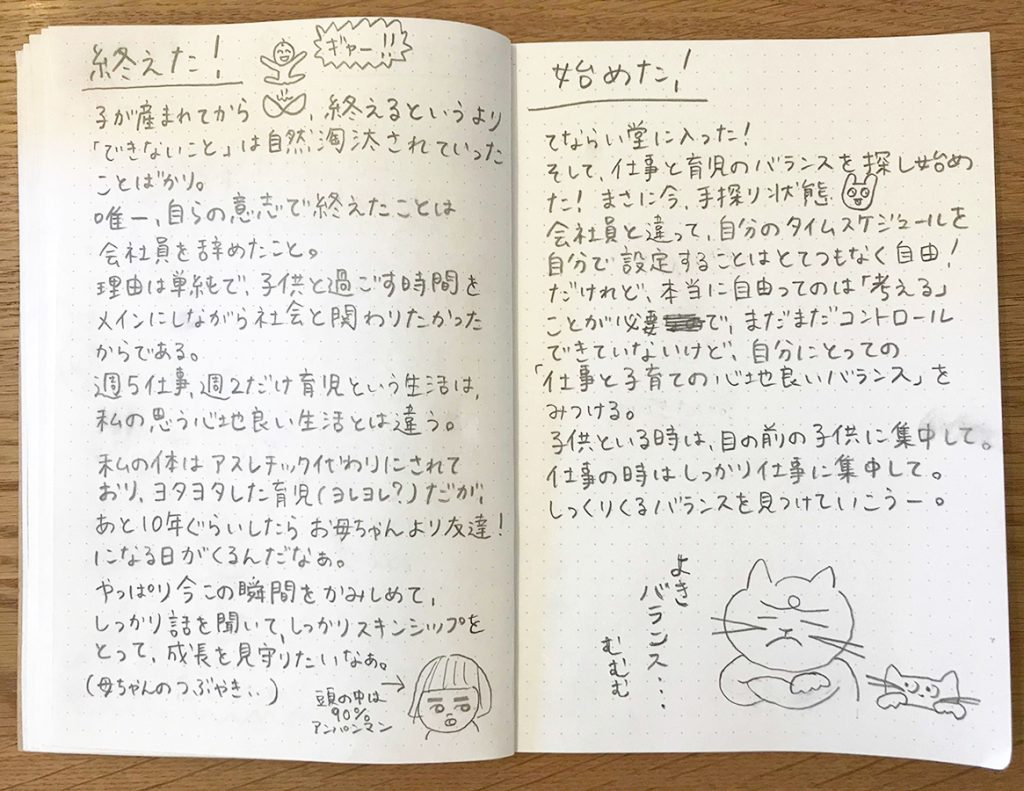 終えた!
ギャー!!
子が産まれてから、終えるというより
「できないこと」は自然淘汰されていった
ことばかり。
唯一、自らの意志で終えたことは
会社員を辞めたこと。
理由は単純で、子供と過ごす時間を
メインにしながら社会と関わりたかった
からである。
週5仕事、週2だけ育児という生活は、
私の思う心地良い生活とは違う。
私の体はアスレチック代わりにされて
おり、ヨタヨタした育児(ヨレヨレ?)だが、
あと10年ぐらいしたらお母ちゃんより友達!
になる日がくるんだなぁ。
やっぱり今この瞬間をかみしめて、
しっかり話を聞いて、しっかりスキンシップを
とって、成長を見守りたいなあ。
(母ちゃんのつぶやき..)
頭の中は
90%
アンパンマン
始めた!
てならい堂に入った!
そして、仕事と育児のバランスを探し始め
た! まさに今、手探り状態
会社員と違って、自分のタイムスケジュールを
自分で設定することはとてつもなく自由!
だけれど、本当に自由ってのは「考える」
ことが必要で、まだまだコントロール
できていないけど、自分にとっての
「仕事と子育ての心地良いバランス」を
みつける。
子供といる時は、目の前の子供に集中して。
仕事の時はしっかり仕事に集中して。
しっくりくるバランスを見つけていこうー。
よき
バランス...
むむむ